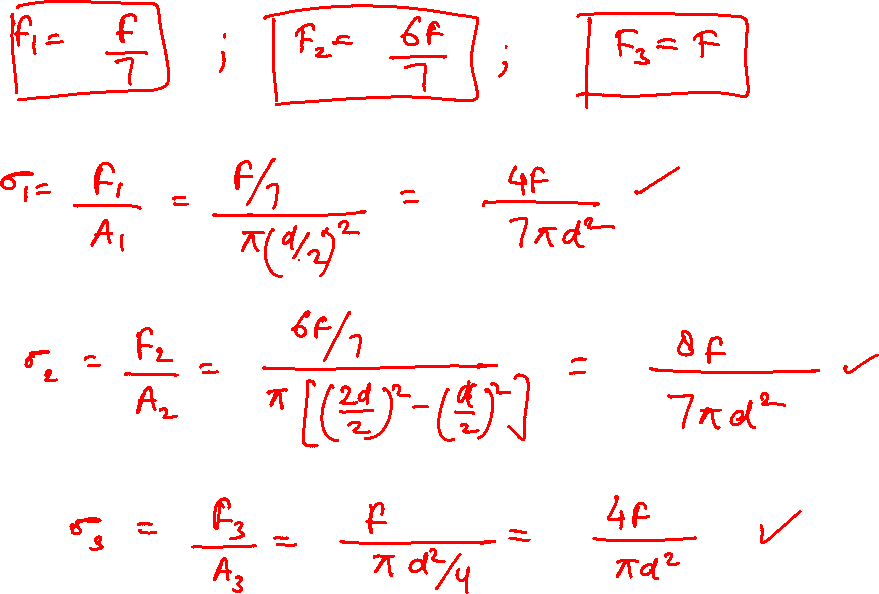 F₁ = F/7 ; F₂ = 6F/7 ; F₃ = F
σ₁ = F₁/A₁ = (F/7)/(π(d/2)²) = 4F/(7πd²) ✓
σ₂ = F₂/A₂ = (6F/7)/(π[(2d/2)² - (d/2)²]) = 8F/(7πd²) ✓
σ₃ = F₃/A₃ = F/(πd²/4) = 4F/(πd²) ✓